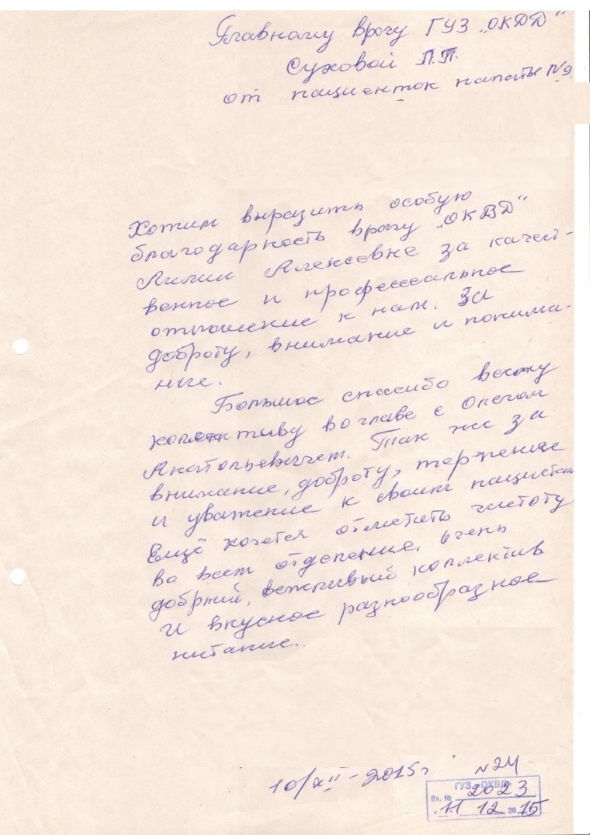 Главному врачу ГУЗ „ОКВД"
Суховой Л.П.
от пациенток палаты №9
Хотим выразить особую
благодарность врачу „ОКВД"
Лилии Алексевне за качест-
венное и професеальное
отношение к нам. За
доброту, внимание и понима-
ние.
Большое спасибо всему
коллективу во главе с Олегом
Анатольевичем. Так же за
внимание, доброту, терпение
и уважение к своим пациентам
Ещё хочется отметить чистоту
во всем отделение, очень
добрый, вежливый коллектив
и вкусное разнообразное
питание.
10/XII-2015г №24
ГУЗ „ОКВД"
Вх. № 2023
11 12 2015